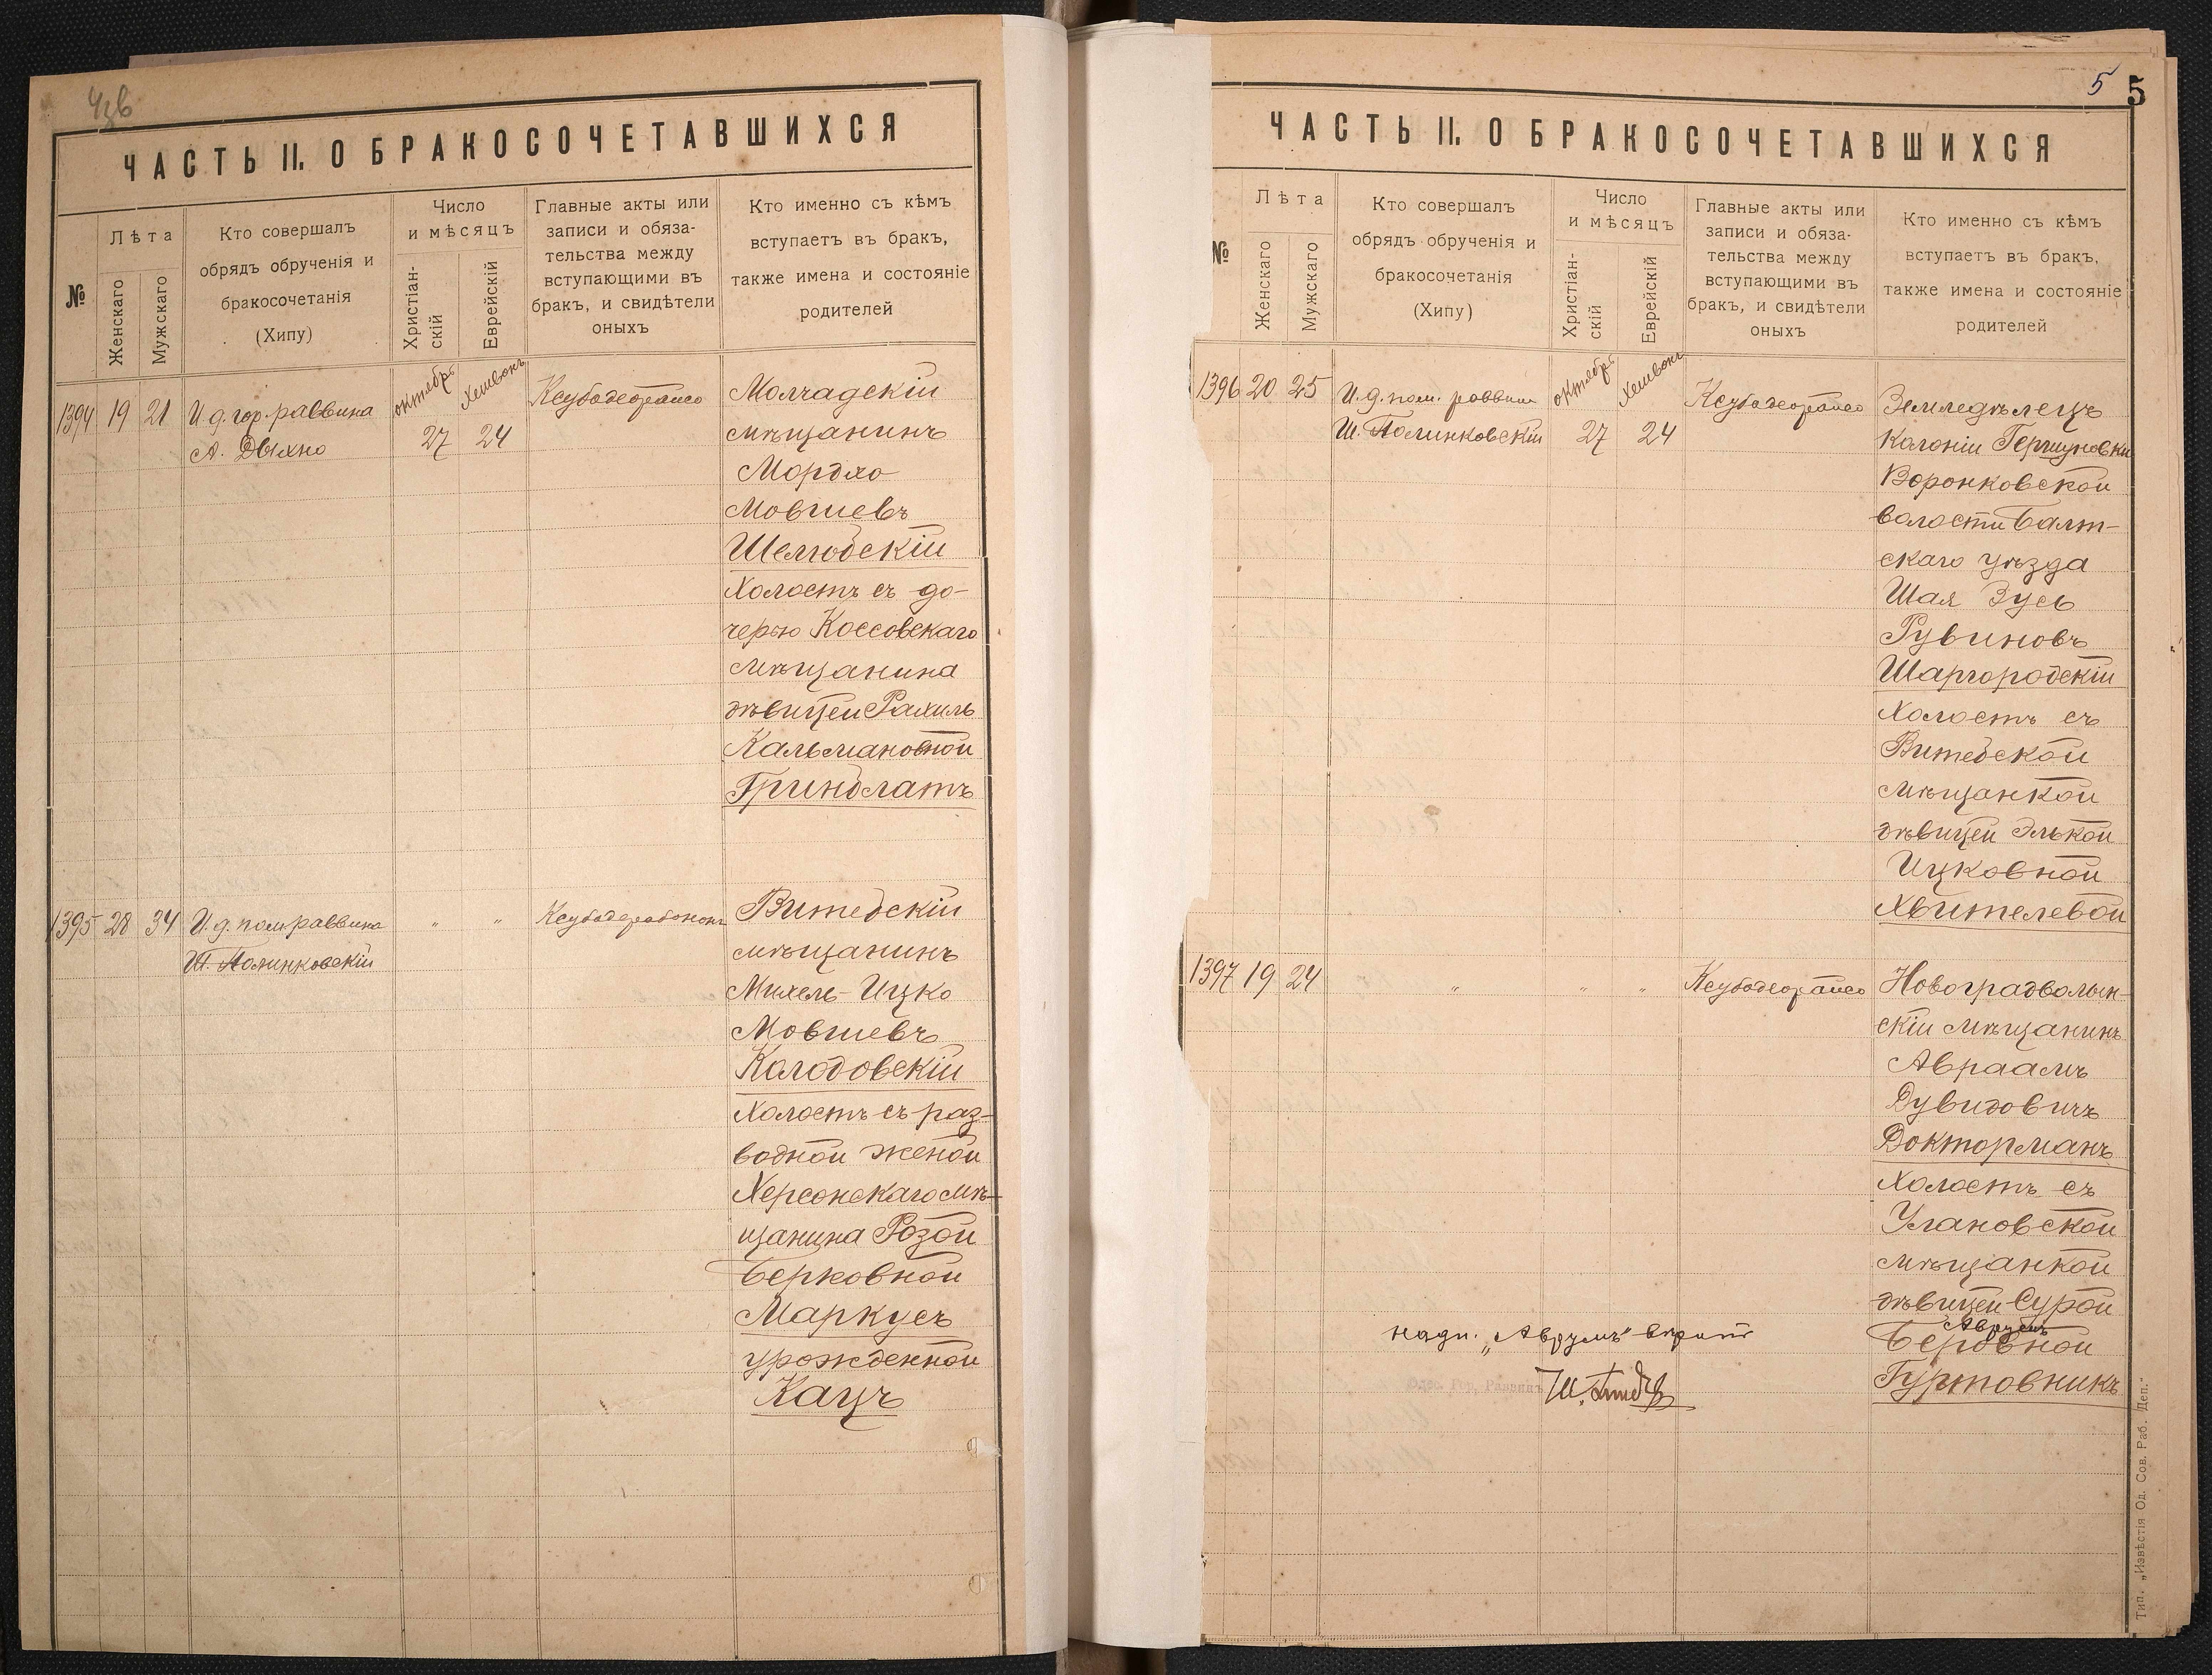 ЧАСТЬ II. О БРАКОСОЧЕТАВШИХСЯ
№
Лѣта
Женскаго
Мужскаго
Кто совершалъ
обрядъ обрученія и
бракосочетанія
(Хипу)
Число
и мѣсяцъ
Христіан-
скій
Еврейскій
Главные акты или
записи и обяза-
тельства между
вступающими въ
бракъ, и свидѣтели
оныхъ
Кто именно съ кѣмъ
вступаетъ въ бракъ,
также имена и состояніе
родителей
1394 19 21
И. д. гор. раввина
А. Дыхно
октябрь
27
Хешвонъ
24
Ксубадеорайсо
Молчадскій
мѣщанинъ
Мордхо
Мовшевъ
Шелюбскій
холостъ съ до-
черью Коссовскаго
мѣщанина
дѣвицей Рахиль
Кальмановной
Гринблатъ
1395 28 34
И. д. пом. раввина
Ш. Полинковскій
" "
Ксубадерабононъ
Витебскій
мѣщанинъ
Михель-Ицко
Мовшевъ
Колодовскій
холостъ съ раз-
водной женой
Херсонскаго мѣ-
щанина Розой
Берковной
Маркусъ
урожденной
Кацъ
5 5
ЧАСТЬ II. О БРАКОСОЧЕТАВШИХСЯ
№
Лѣта
Женскаго
Мужскаго
Кто совершалъ
обрядъ обрученія и
бракосочетанія
(Хипу)
Число
и мѣсяцъ
Христіан-
скій
Еврейскій
Главные акты или
записи и обяза-
тельства между
вступающими въ
бракъ, и свидѣтели
оныхъ
Кто именно съ кѣмъ
вступаетъ въ бракъ,
также имена и состояніе
родителей
1396 20 25
И. д. пом. раввина
Ш. Полинковскій
октябрь
27
Хешвонъ
24
Ксубадеорайсо
Земледѣлецъ
колоніи Гершуновки
Воронковской
волости Балт-
скаго уѣзда
Шая Зусь
Рувиновъ
Шаргородскій
холостъ съ
Витебской
мѣщанкой
дѣвицей Элькой
Ицковной
Хвителевой
1397 19 24
" " "
Ксубадеорайсо
Новоградволын-
скій мѣщанинъ
Авраамъ
Дувидовичъ
Докторманъ
холостъ съ
Улановской
мѣщанкой
дѣвицей Сурой
Аврумъ
Беровной
Гуртовникъ
надп. „Аврумъ" вѣрить
Одес. Гор. Раввинъ
Тип. „Извѣстія Од. Сов. Раб. Деп."